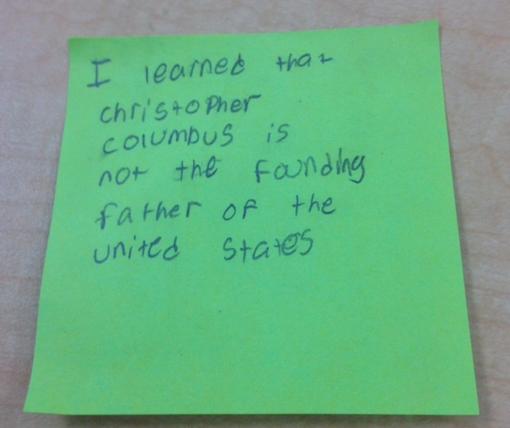 I learned that
christopher
columbus is
not the founding
father of the
united states